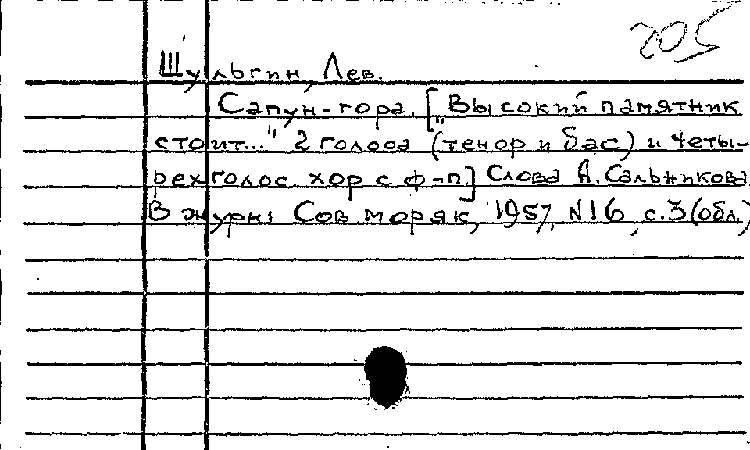 205
Шульгин, Лев.
Сапун-гора. ["Высокий памятник
стоит..." 2 голоса (тенор и бас) и четы-
рехголос. хор с ф-п.] Слова А. Сальникова
В журн: Сов моряк, 1957, N16, с.3 (обл.)